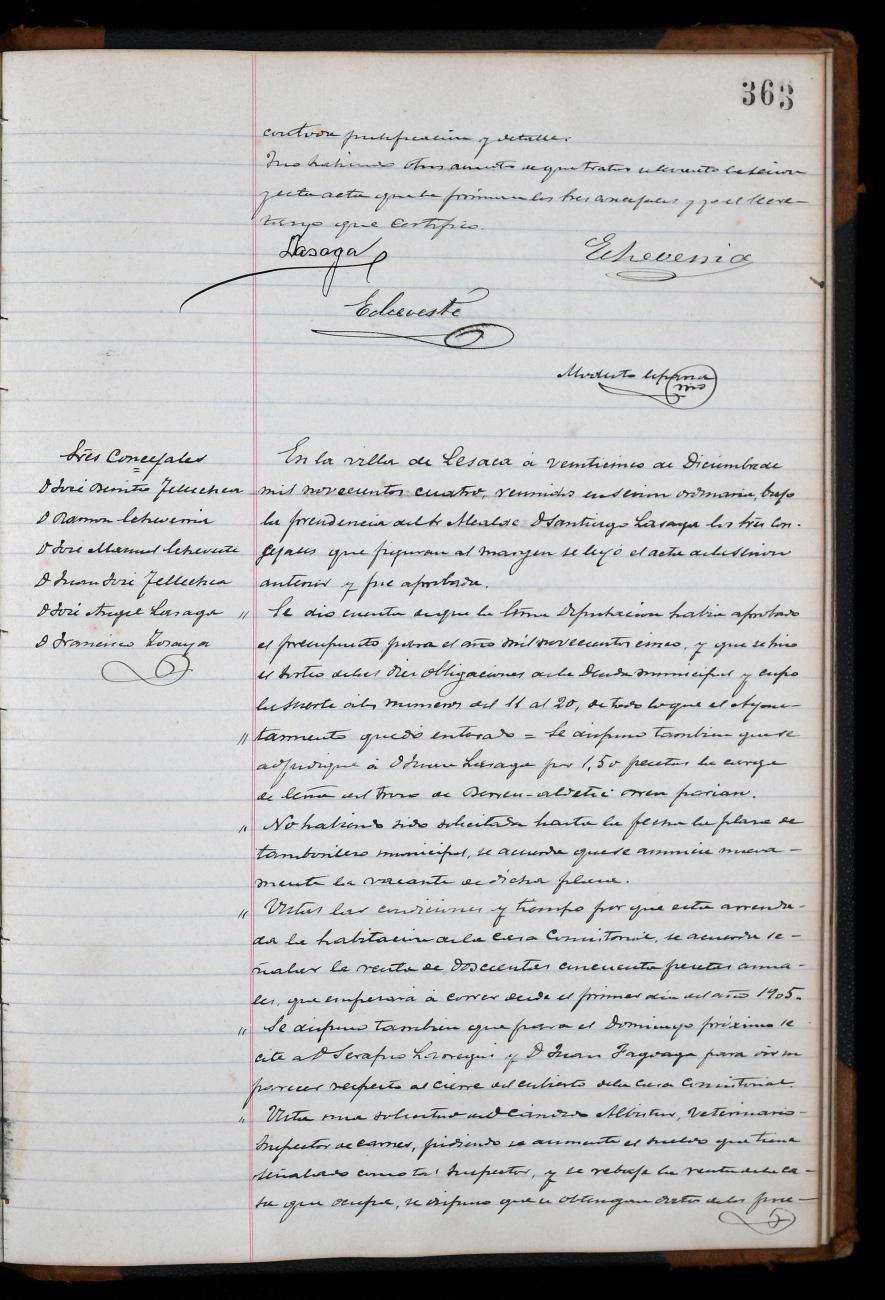 363
con toda justificación y detalle.
Y no habiendo otros asuntos de que tratar se levanto la sesion
y esta acta que la firman los tres concejales y yo el Secre-
tario que certifico.
Lasaga
Echeverria
Echeveste
Modesto
Sres Concejales
D José Benito Tellechea
D Ramon Echeverria
D José Manuel Echeveste
D Juan José Tellechea
D José Angel Lasaga
D Francisco
En la villa de Lesaca á veinticinco de Diciembre de
mil novecientos cuatro, reunidos en sesion ordinaria, bajo
la presidencia del Sr Alcalde D Santiago Lasaga los sres con-
cejales que figuran al margen se leyó el acta de la sesion
anterior y fue aprobada.
" Se dio cuenta de que la Exma Diputacion habia aprobado
el presupuesto para el año mil novecientos cinco, y que se hizo
el sorteo de las diez obligaciones de la Deuda municipal y cupo
la suerte á los numeros del 11 al 20, de todo lo que el Ayun-
" tamiento quedó enterado = Se dispuso tambien que se
adjudique á D Juan Lasaga por 1,50 pesetas la carga
de leña del trozo de
" No habiendo sido solicitada hasta la fecha la plaza de
tamborilero municipal, se acuerda que se anuncie nueva-
mente la vacante de dicha plaza.
" Vistas las condiciones y tiempo por que esta arrenda-
da la habitacion de la casa Consistorial, se acuerda se-
ñalar la renta de doscientas cincuenta pesetas anua-
les, que empesará á correr desde el primer dia del año 1905.
" Se dispuso tambien que para el Domingo próximo se
cite a D Serapio y D Juan Fagoaga para oir su
parecer respecto al cierre del cubierto de la casa Consistorial.
" Vista una solicitud de D Candido Albistur, Veterinario-
Inspector de carnes, pidiendo se aumente el sueldo que tiene
señalado como tal Inspector, y se rebaje la renta de la ca-
sa que ocupa, se dispuso que se obtengan datos de los pue-